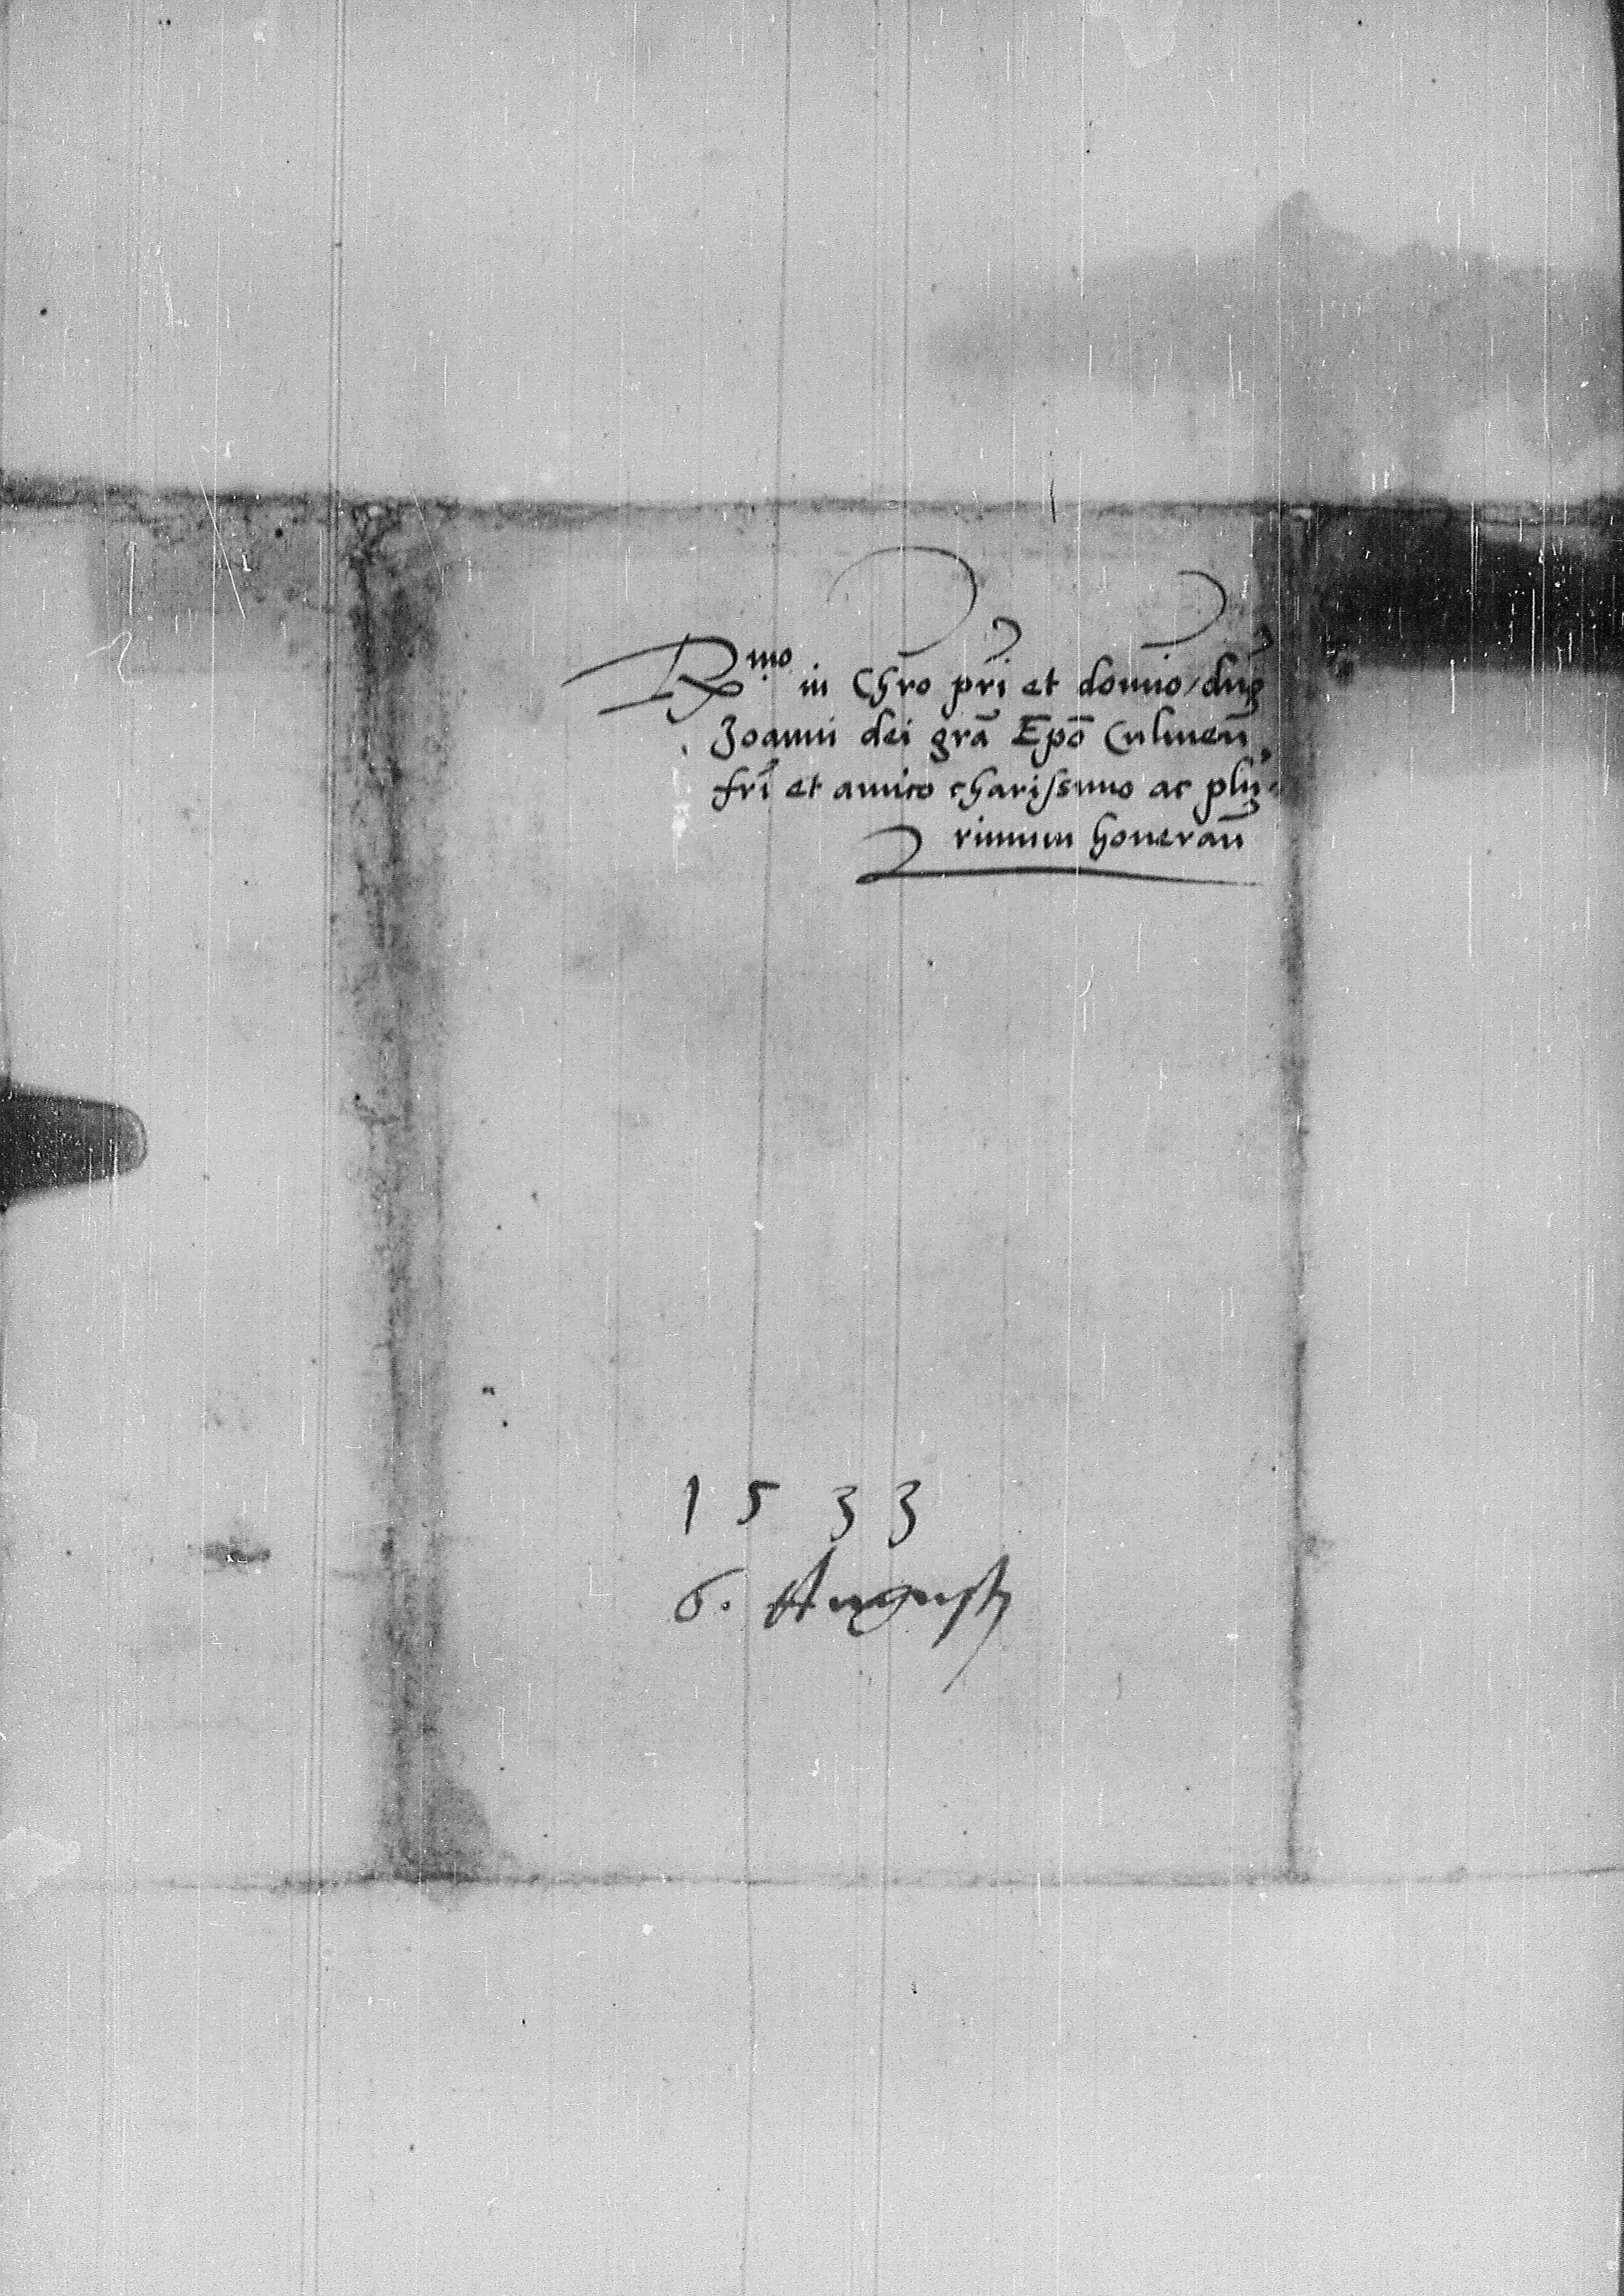 R.mo in Chro pri et domino, dno
Joanni dei gra Epo Culmen̄.
fri et amico charissimo ac plu-
rimum honeran̄
1533
6. Augusti